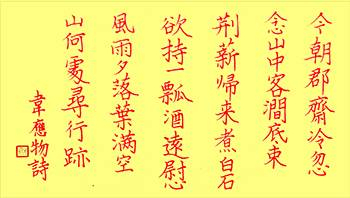 今朝郡齋冷忽
念山中客澗底束
荆薪歸来煮白石
欲持一瓢酒遠慰
風雨夕落葉滿空
山何處尋行跡
韋應物詩